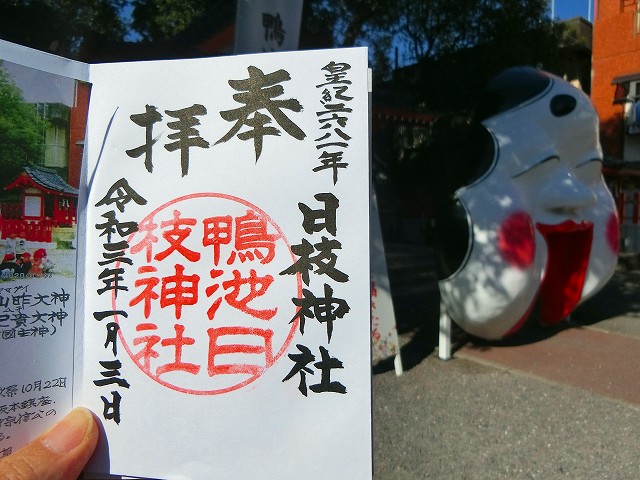 皇紀二六八一年
奉拝
日枝神社
鴨池日
枝神社
令和三年一月三日
山咋大神
己貴大神
祭10月22日
鴨池